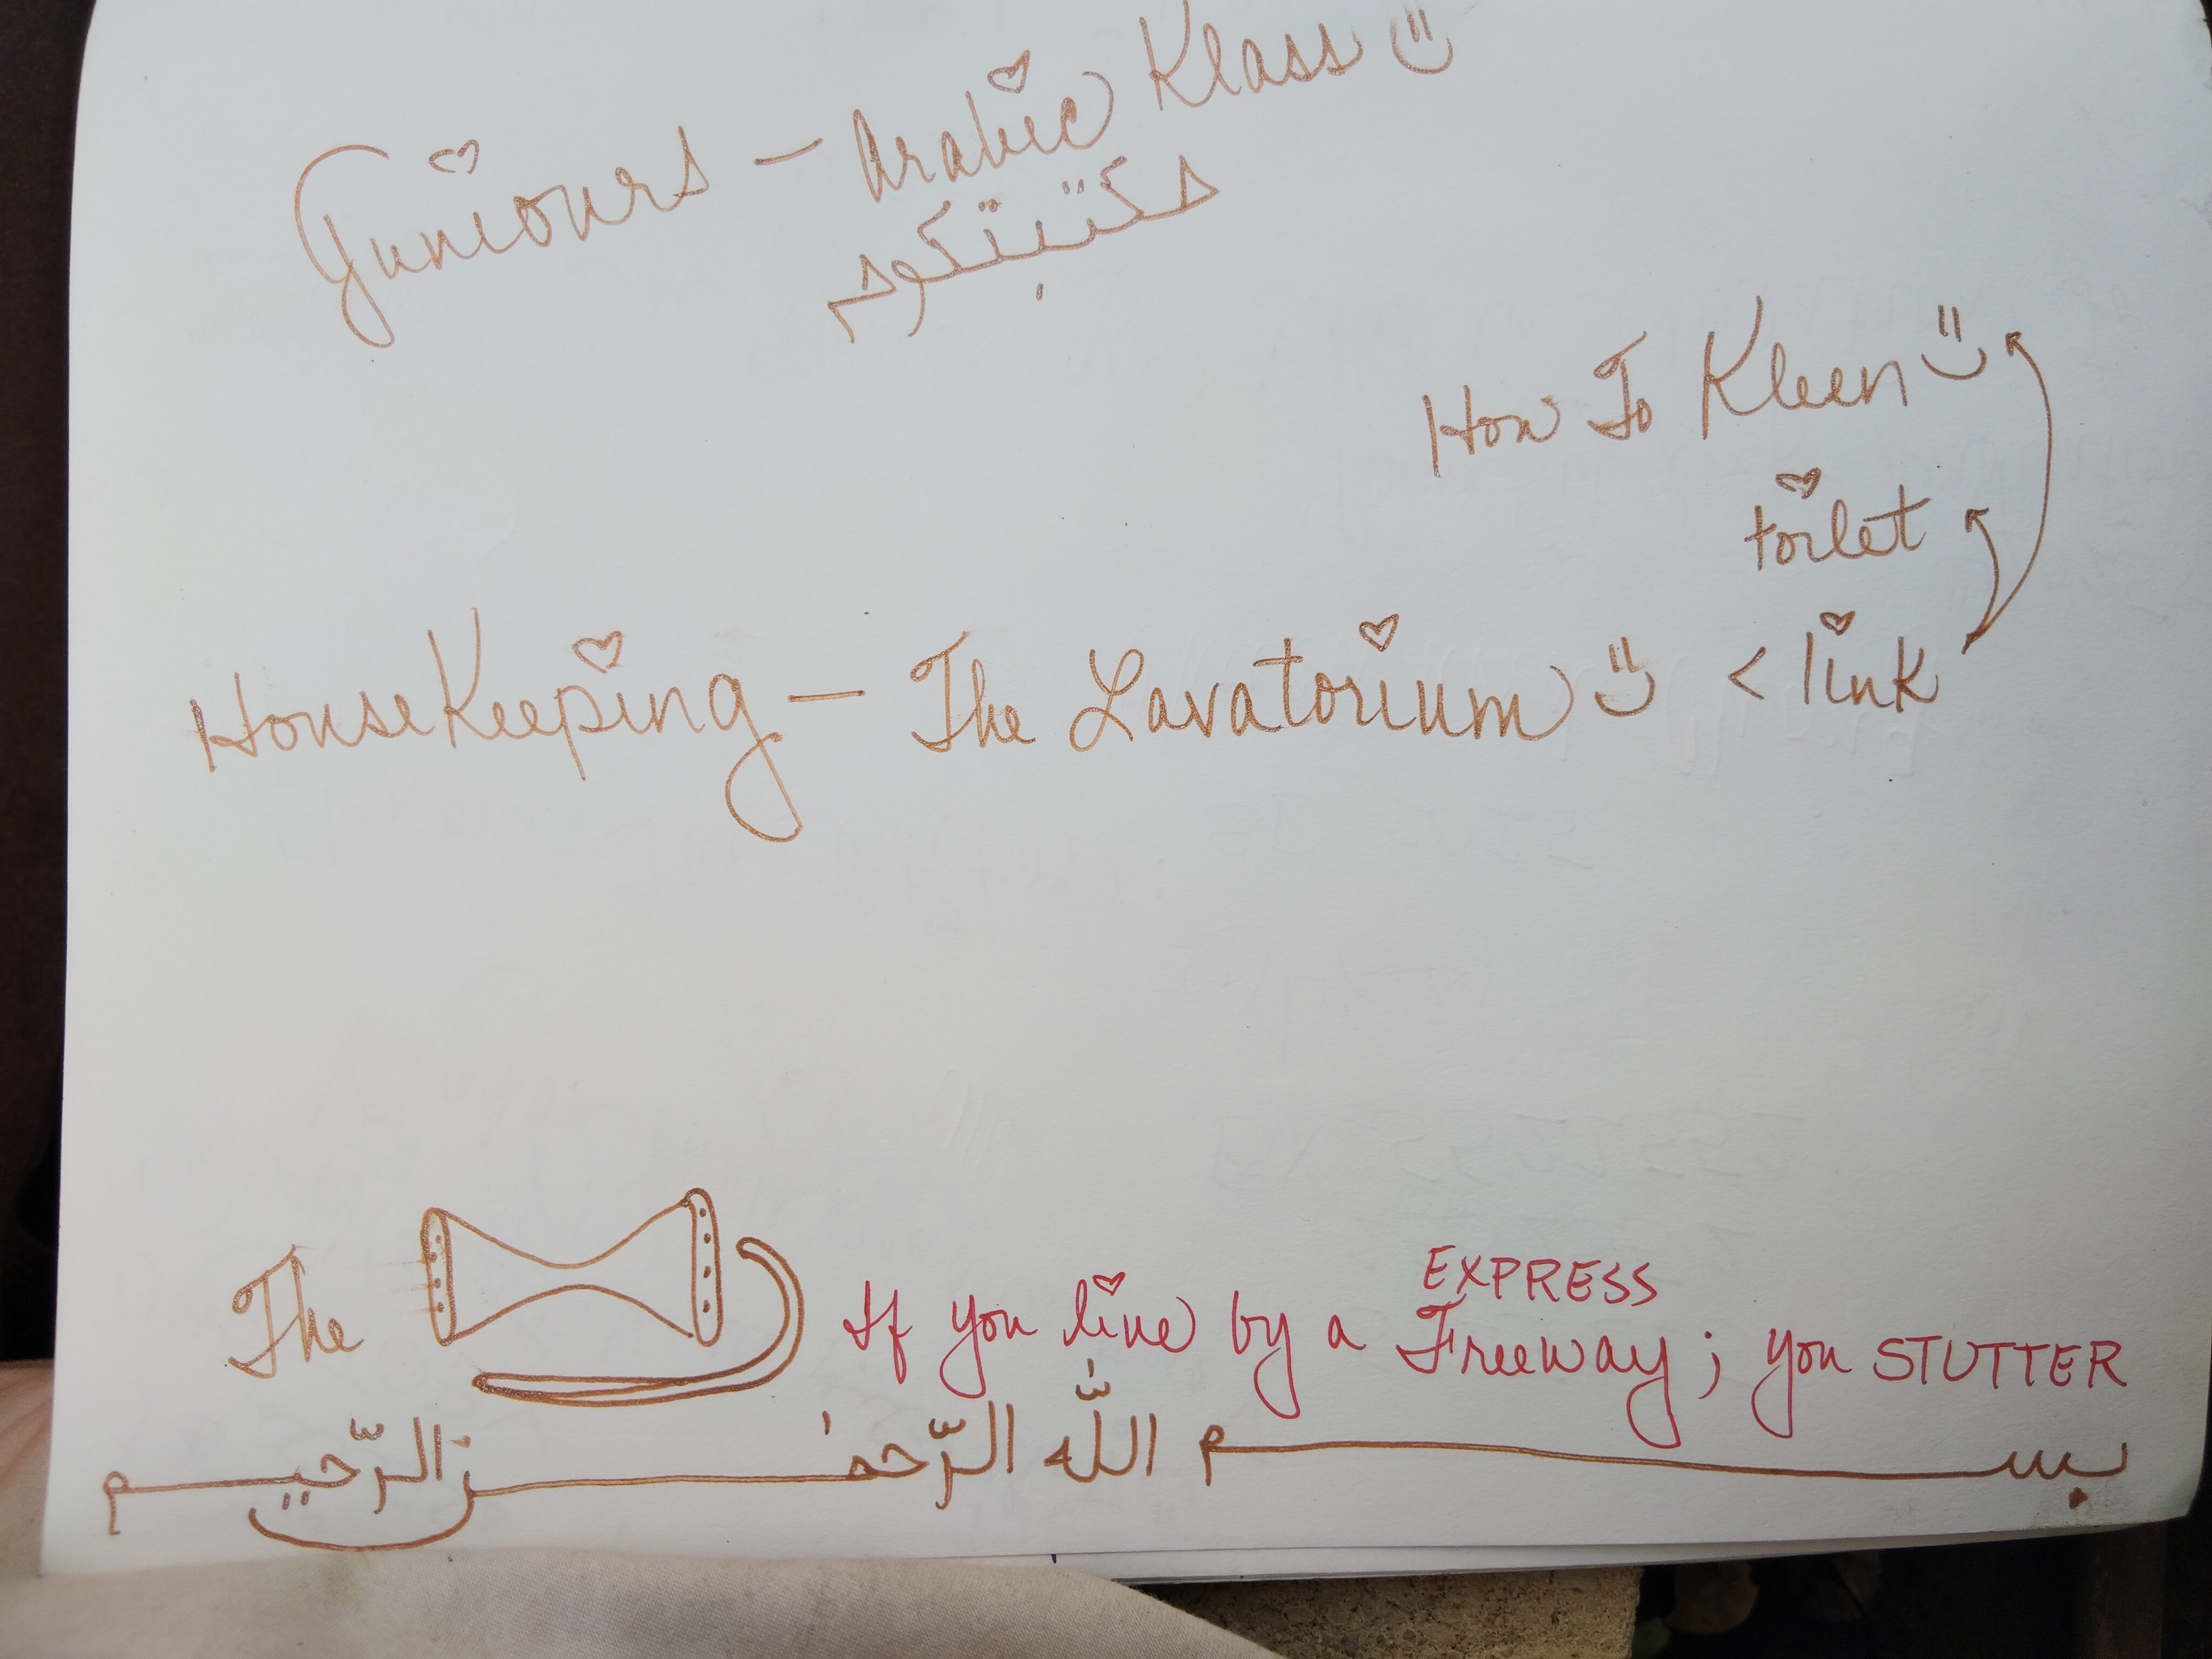 Juniours - Arabic Klass
How To Kleen
toilet
HouseKeeping - The Lavatorium < link
The
EXPRESS
If you live by a Freeway; you STUTTER
بسم اللّٰه الرّحمٰن الرّحيم